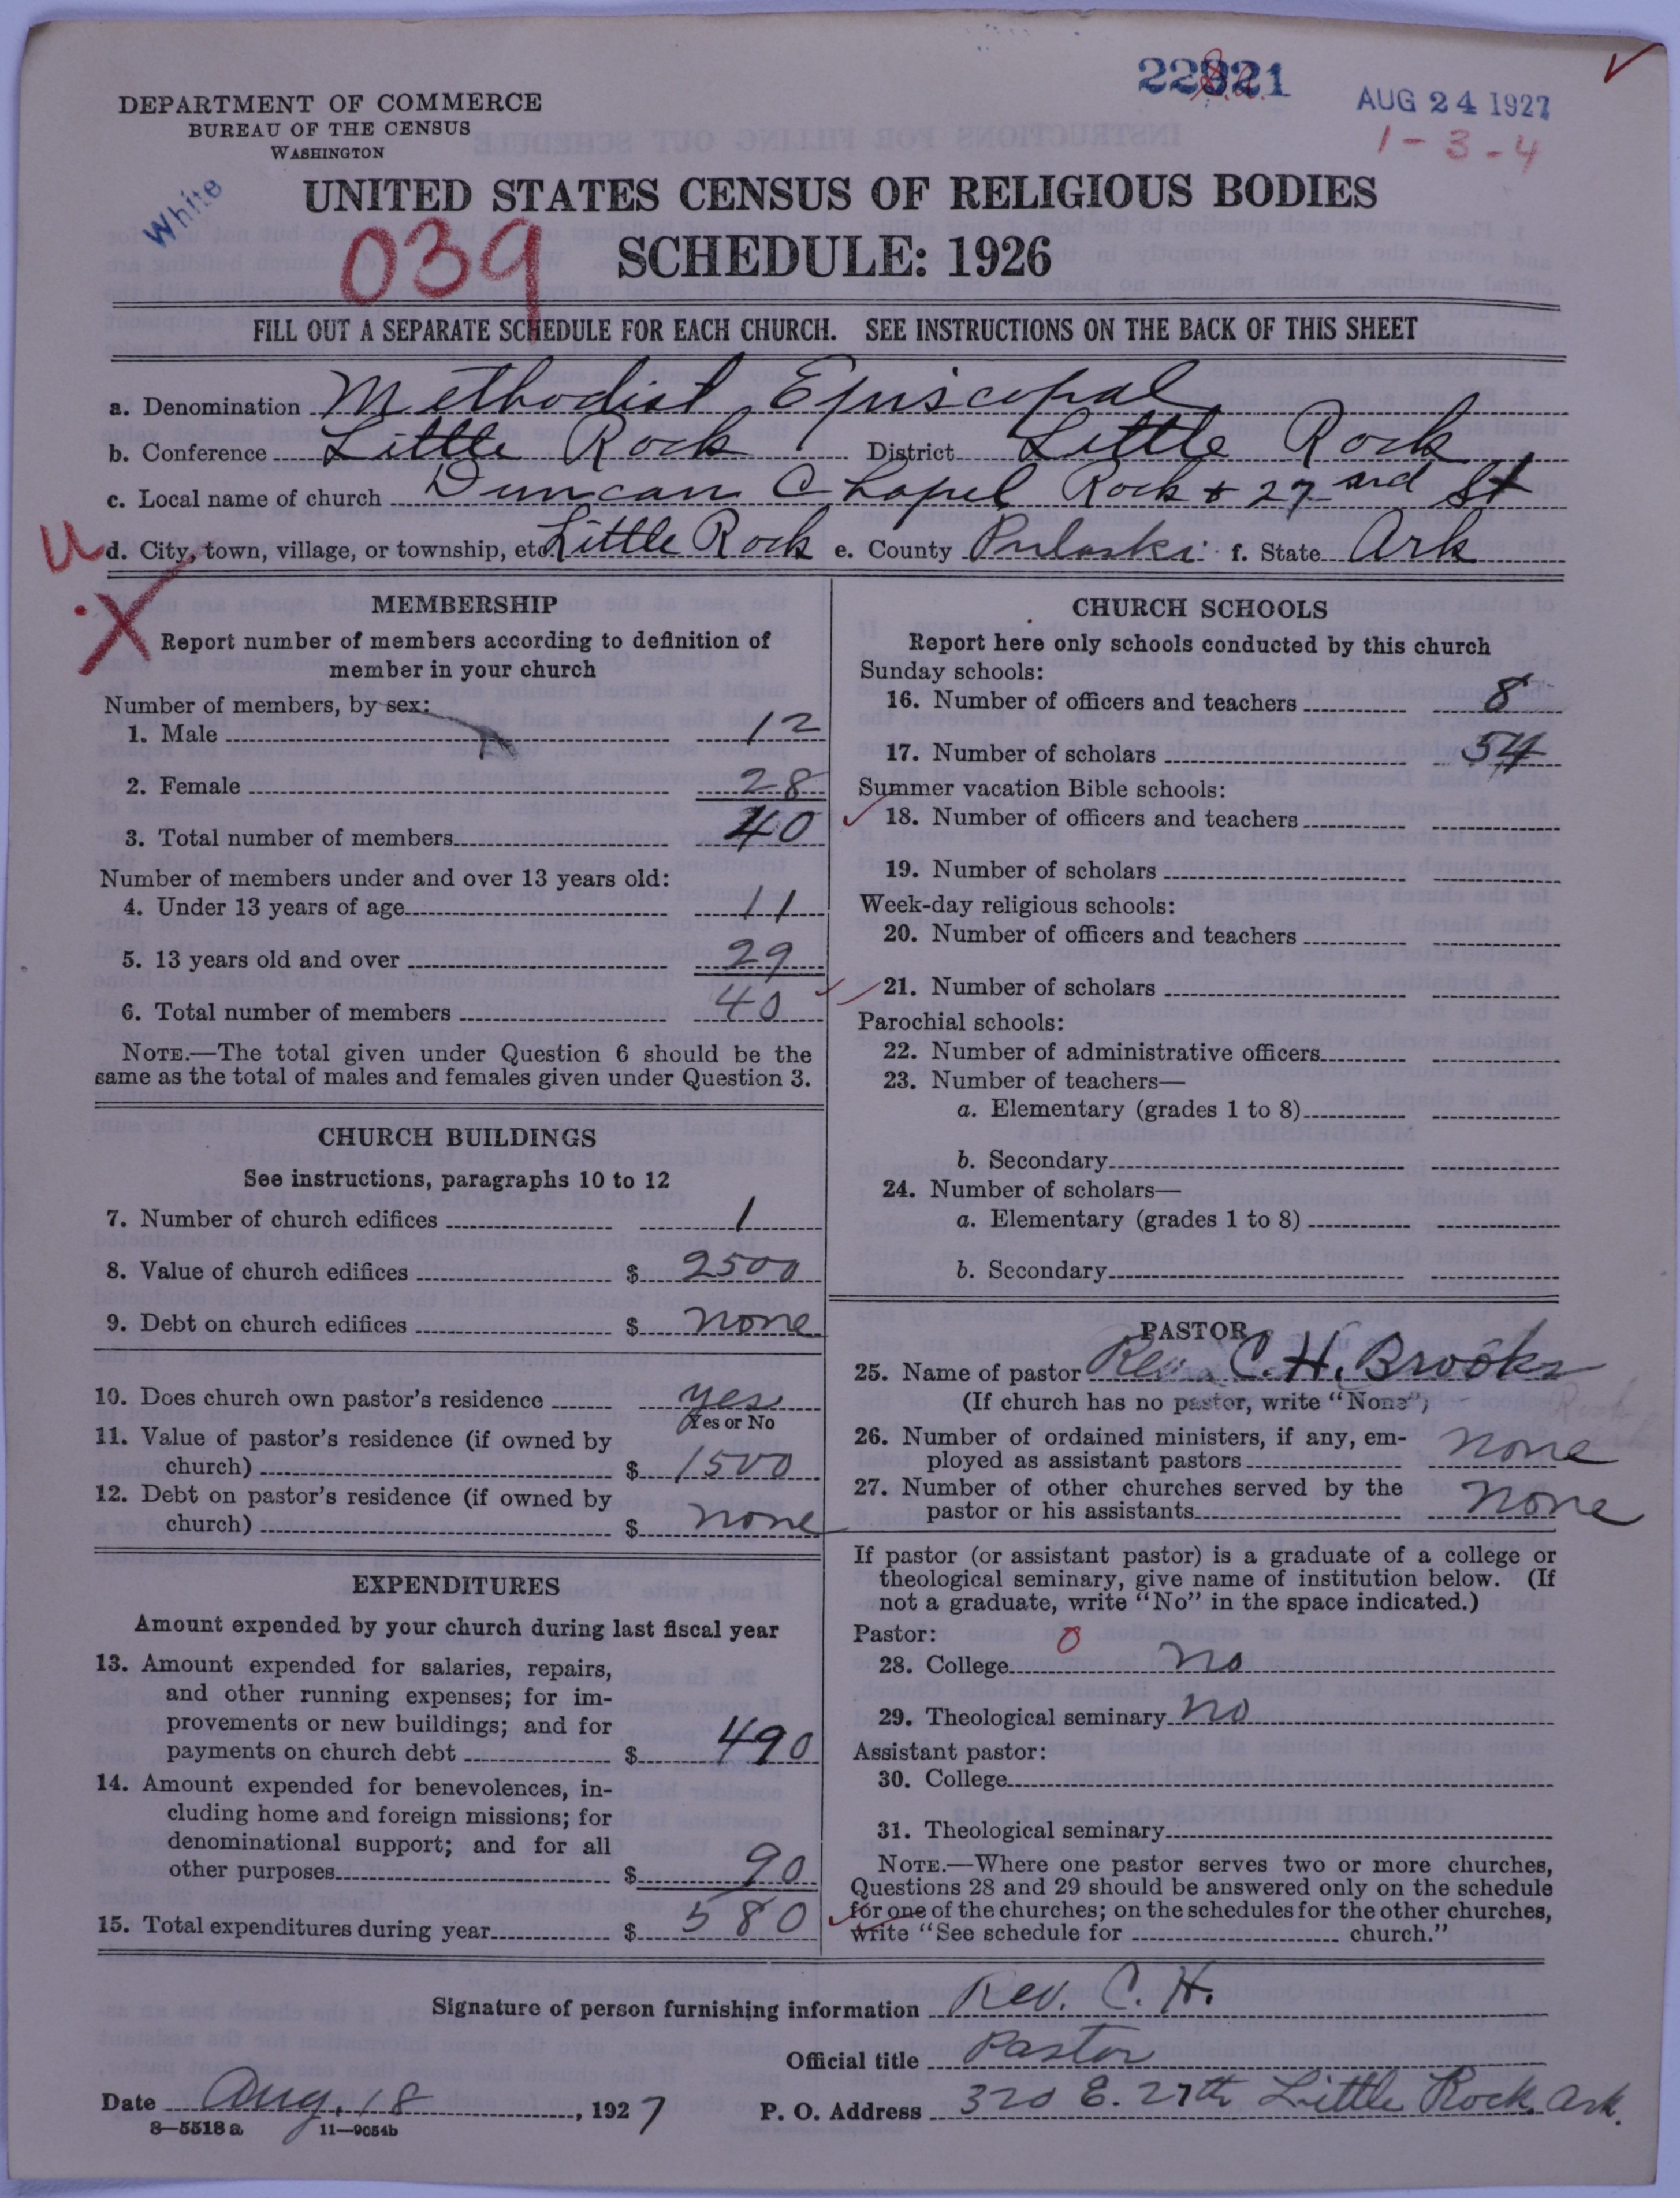 22821
AUG 24 1927
1-3-4
DEPARTMENT OF COMMERCE
BUREAU OF THE CENSUS
WASHINGTON
White
UNITED STATES CENSUS OF RELIGIOUS BODIES
039
SCHEDULE: 1926
FILL OUT A SEPARATE SCHEDULE FOR EACH CHURCH. SEE INSTRUCTIONS ON THE BACK OF THIS SHEET
a. Denomination Methodist Episcopal
b. Conference Little Rock District Little Rock
c. Local name of church Duncan Chapel Rock & 27 rd St
u d. City, town, village, or township, etc. Little Rock e. County Pulaski f. State Ark
X
MEMBERSHIP
Report number of members according to definition of
member in your church
Number of members, by sex:
1. Male 12
2. Female 28
3. Total number of members 40
Number of members under and over 13 years old:
4. Under 13 years of age 11
5. 13 years old and over 29
6. Total number of members 40
NOTE.—The total given under Question 6 should be the
same as the total of males and females given under Question 3.
CHURCH BUILDINGS
See instructions, paragraphs 10 to 12
7. Number of church edifices 1
8. Value of church edifices $ 2500
9. Debt on church edifices $ none
10. Does church own pastor's residence yes
Yes or No
11. Value of pastor's residence (if owned by
church) $ 1500
12. Debt on pastor's residence (if owned by
church) $ none
EXPENDITURES
Amount expended by your church during last fiscal year
13. Amount expended for salaries, repairs,
and other running expenses; for im-
provements or new buildings; and for
payments on church debt $ 490
14. Amount expended for benevolences, in-
cluding home and foreign missions; for
denominational support; and for all
other purposes $ 90
15. Total expenditures during year $ 580
CHURCH SCHOOLS
Report here only schools conducted by this church
Sunday schools:
16. Number of officers and teachers 8
17. Number of scholars 54
Summer vacation Bible schools:
18. Number of officers and teachers
19. Number of scholars
Week-day religious schools:
20. Number of officers and teachers
21. Number of scholars
Parochial schools:
22. Number of administrative officers
23. Number of teachers—
a. Elementary (grades 1 to 8)
b. Secondary
24. Number of scholars—
a. Elementary (grades 1 to 8)
b. Secondary
PASTOR
25. Name of pastor Rev. C. H. Brooks
(If church has no pastor, write "None")
26. Number of ordained ministers, if any, em-
ployed as assistant pastors none
27. Number of other churches served by the
pastor or his assistants none
If pastor (or assistant pastor) is a graduate of a college or
theological seminary, give name of institution below. (If
not a graduate, write "No" in the space indicated.)
Pastor: 0
28. College no
29. Theological seminary no
Assistant pastor:
30. College
31. Theological seminary
NOTE.—Where one pastor serves two or more churches,
Questions 28 and 29 should be answered only on the schedule
for one of the churches; on the schedules for the other churches,
write "See schedule for church."
Signature of person furnishing information Rev. C. H.
Official title Pastor
Date Aug. 18, 1927 P. O. Address 320 E. 27th Little Rock. Ark.
8—5518 a 11—9054b